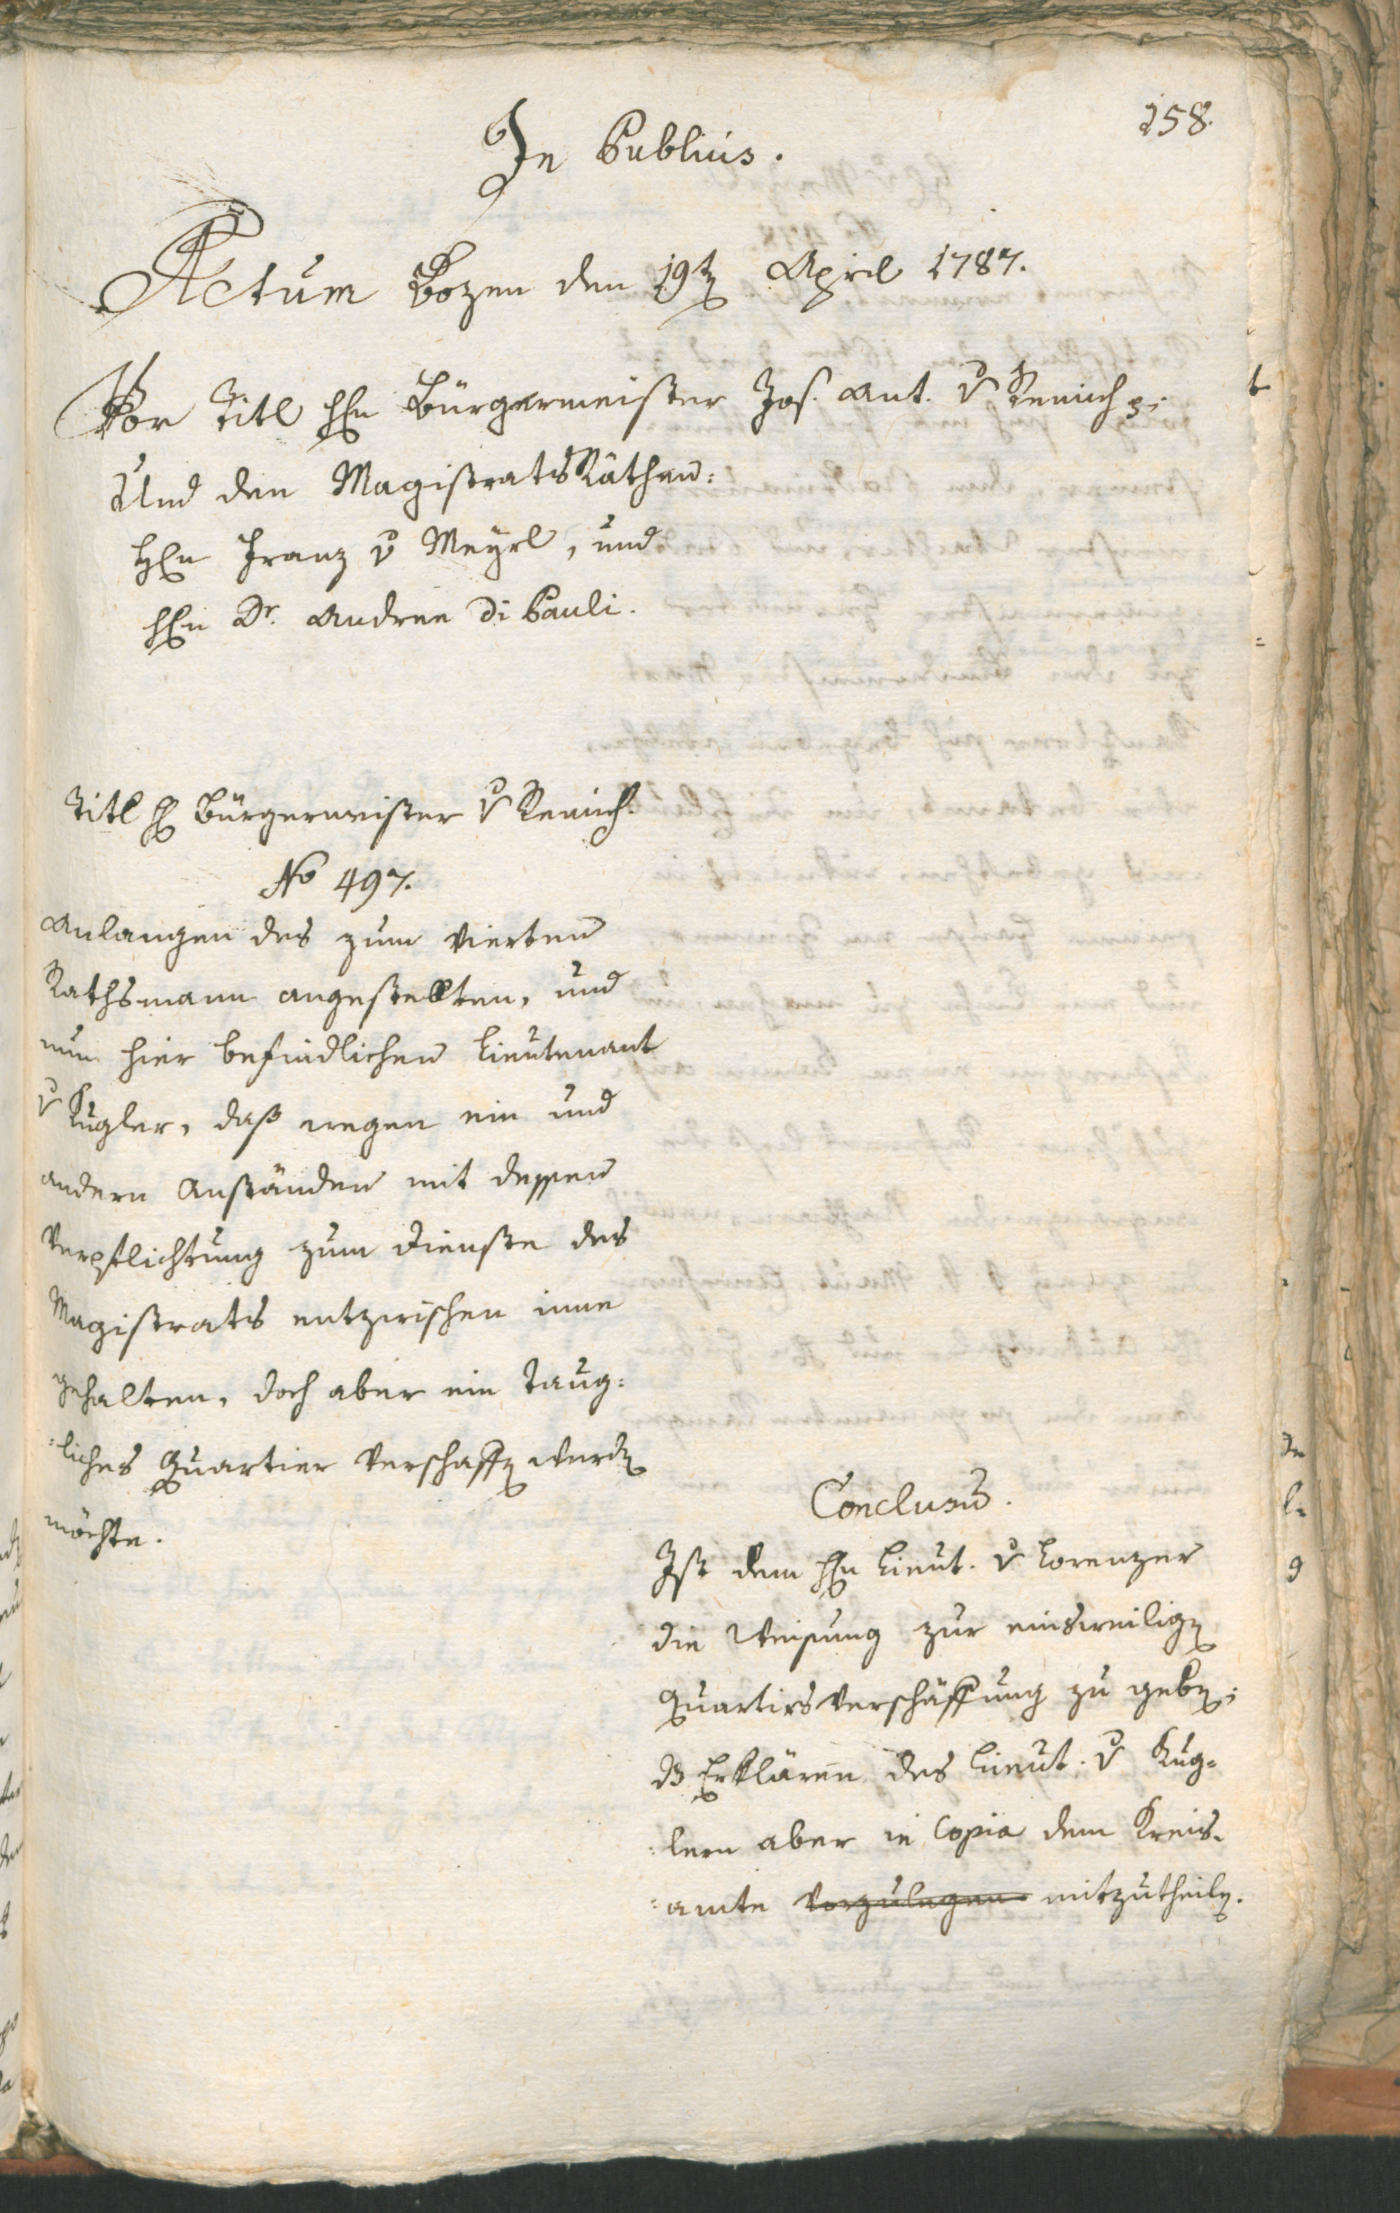 158.
In Publicis.
Actum Bozen den 19t April 1787.
Vor Titl Hn Bürgermeister Jos. Ant. v Remich p;
Und den Magistrats Räthen:
Hn Franz v Meyrl, und
Hn Dr. Andree Di Pauli.
Titl H Bürgermeister v Remich.
No 497.
Anlangen des zum vierten
Rathsmann angestellten, und
nun hier befindlichen Lieutenant
v Kugler, daß wegen ein und
andern Anständen mit dessen
Verpflichtung zum Dienste des
Magistrats entzwischen inne
gehalten, doch aber ein Taug=
=liches Quartier verschaffen werden
möchte.
Conclusum.
Ist dem Hn Lieut. v Lorenzer
die Weisung zur einsweilig
Quartirs Verschaffung zu geben;
Erklären des Lieut. v Kug=
=lern aber in Copia dem Kreis=
=amte vorzulegen mitzutheilen.